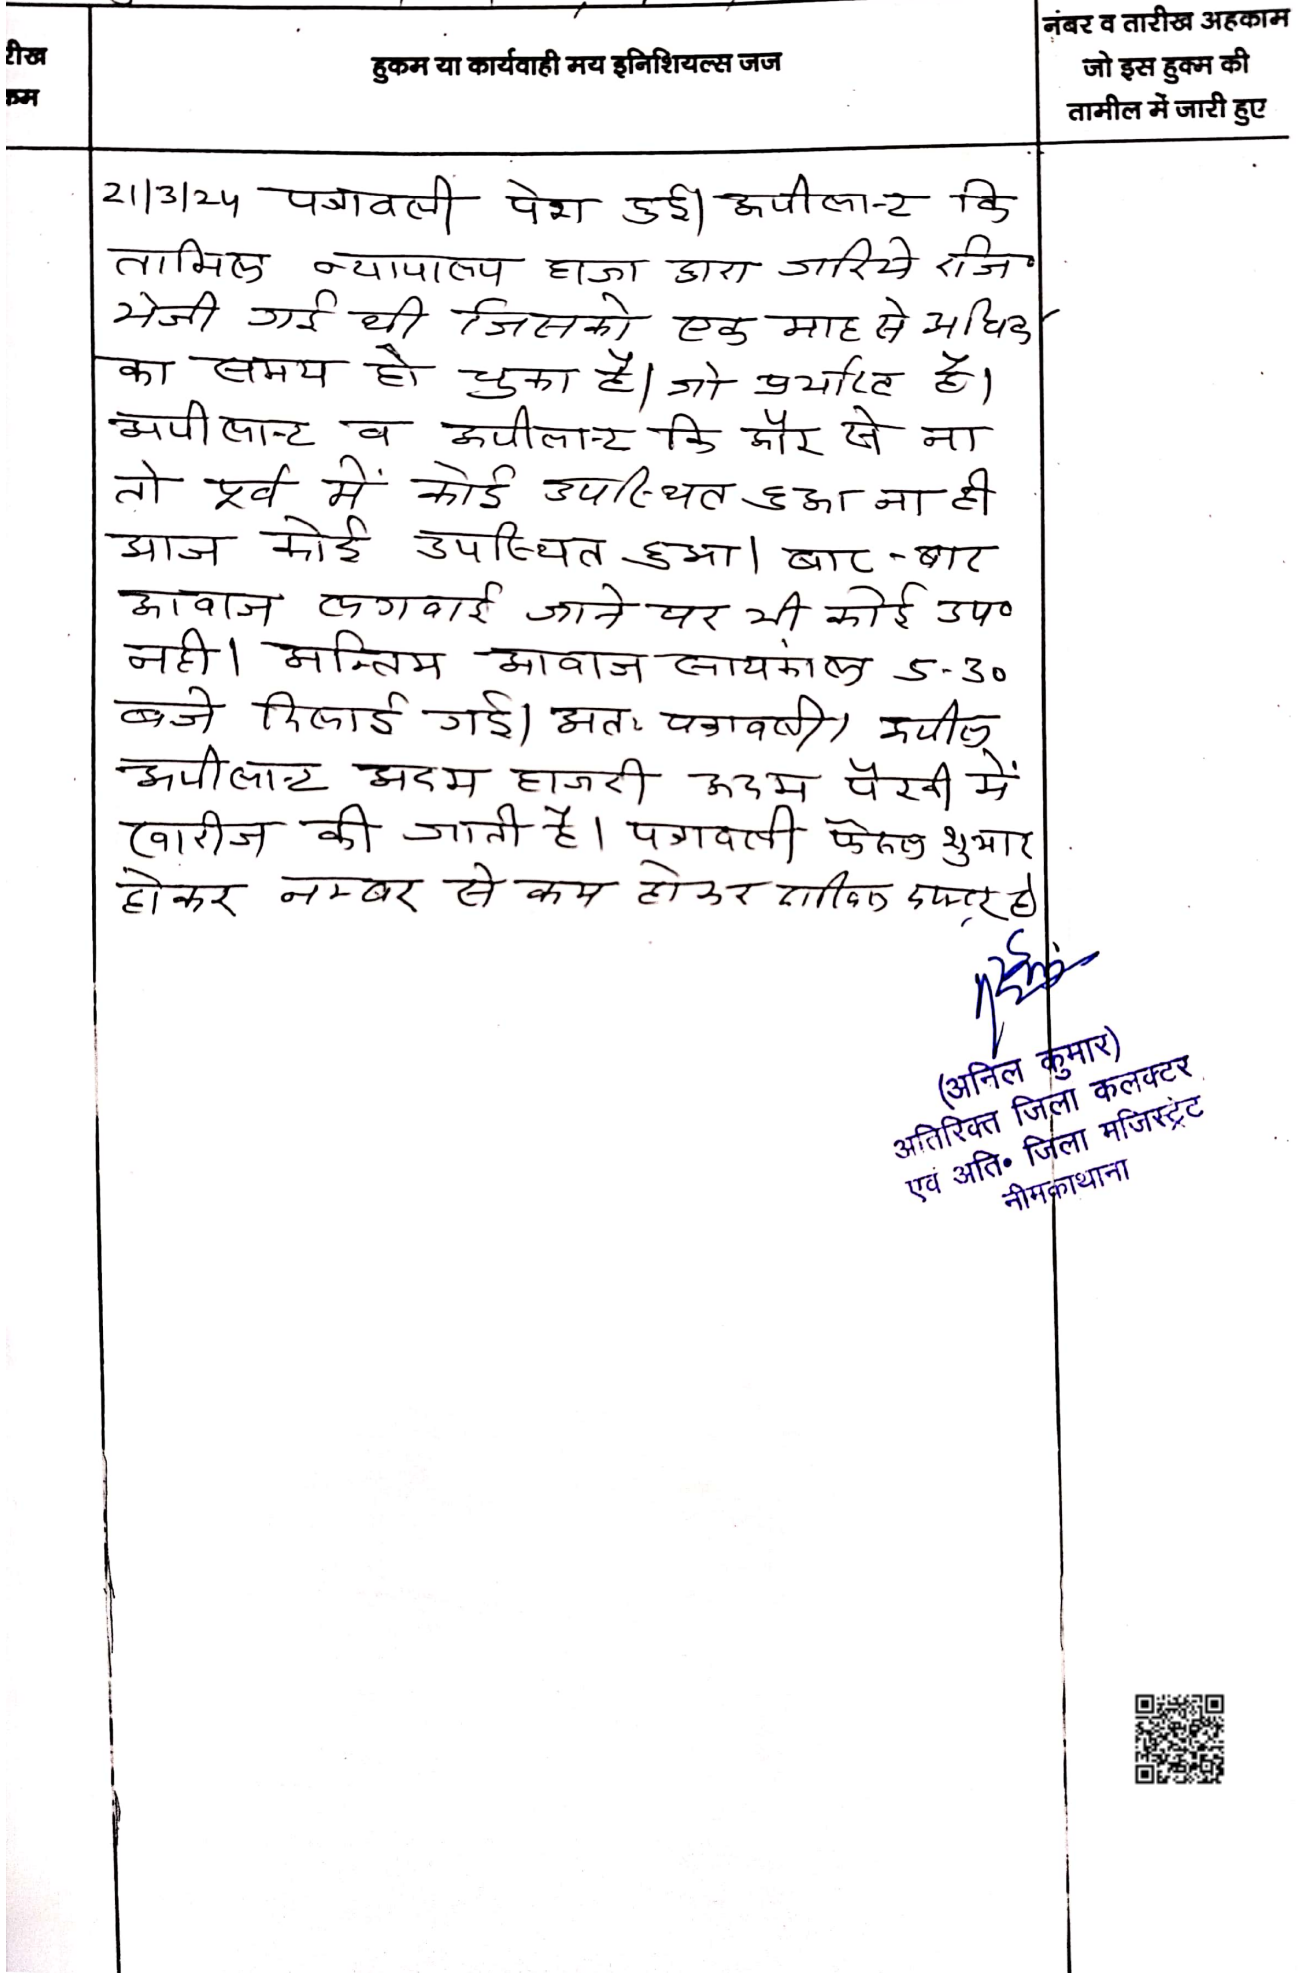 रीख
कम
हुकम या कार्यवाही मय इनिशियल्स जज
नंबर व तारीख अहकाम
जो इस हुक्म की
तामील में जारी हुए
21/3/24 पत्रावली पेश हुई। अपीलान्ट कि
तामिल न्यायालय हाजा द्वारा जरिये रजि॰
भेजी गई थी जिसको एक माह से अधिक
का समय हो चुका है। जो प्रर्याप्त है।
अपीलान्ट व अपीलान्ट कि और से ना
तो पूर्व में कोई उपस्थित हुआ ना ही
आज कोई उपस्थित हुआ। बार-बार
आवाज लगवाई जाने पर भी कोई उप॰
नही। अन्तिम आवाज सायकांल 5-30
बजे दिलाई गई। अतः पत्रावली, अपील
अपीलान्ट अदम हाजरी अदम पैरवी में
खारीज की जाती है। पत्रावली फैसल शुमार
होकर नम्बर से कम होकर दाखिल दफ्तर हो
(अनिल कुमार)
अतिरिक्त जिला कलक्टर
एवं अति॰ जिला मजिस्ट्रेंट
नीमकाथाना